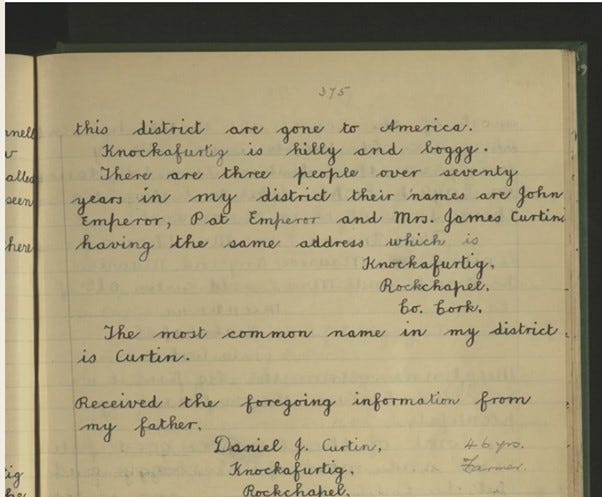 375
this district are gone to America.
Knockafurtig is hilly and boggy.
There are three people over seventy
years in my district their names are John
Emperor, Pat Emperor and Mrs. James Curtin
having the same address which is
Knockafurtig,
Rockchapel,
Co. Cork.
The most common name in my district
is Curtin.
Received the foregoing information from
my father,
Daniel J. Curtin, 46 yrs.
Knockafurtig, Farmer.
Rockchapel,